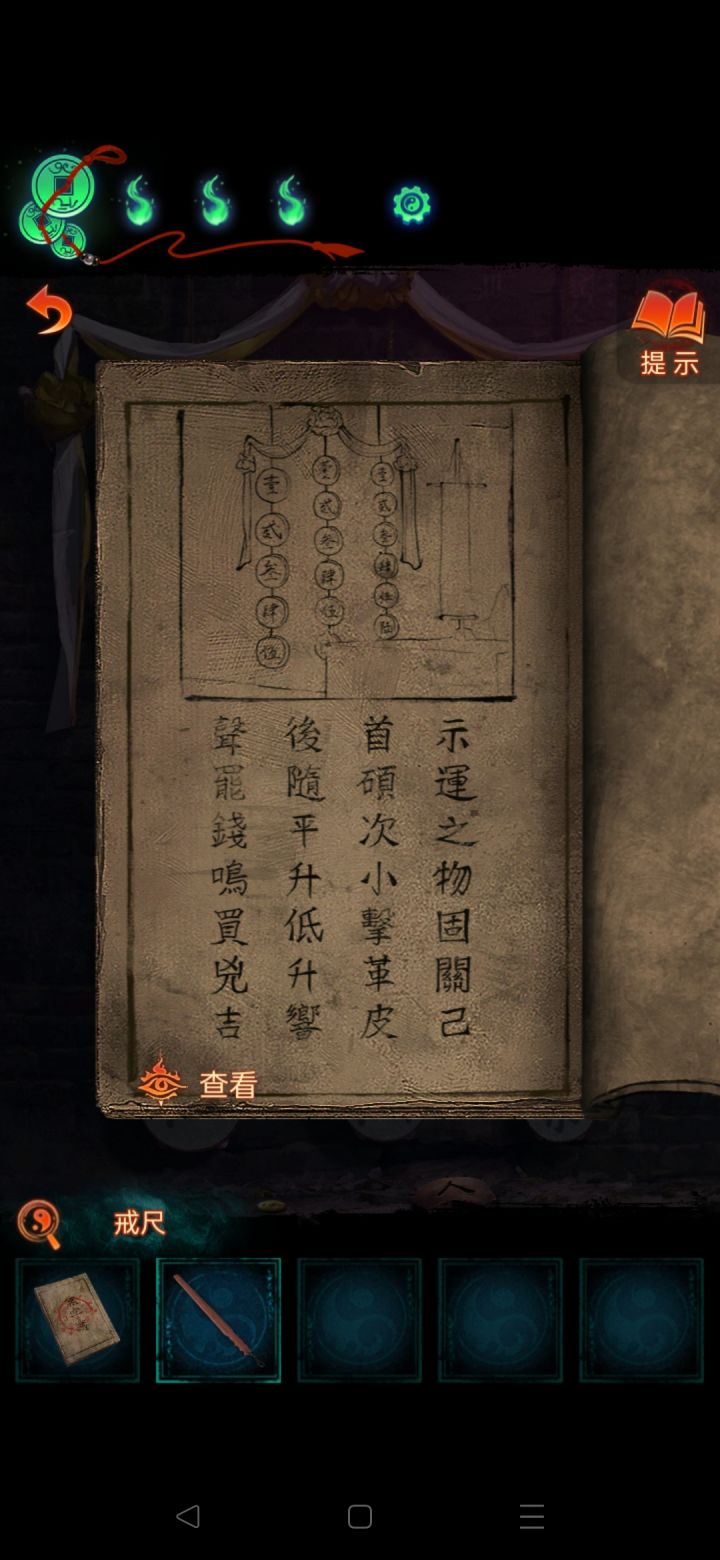 提示
壹 壹 壹
貳 貳 貳
叁 叁 叁
肆 肆 肆
伍 伍 伍
陆
示運之物固關己
首碩次小擊革皮
後隨平升低升響
聲罷錢鳴買兇吉
查看
戒尺